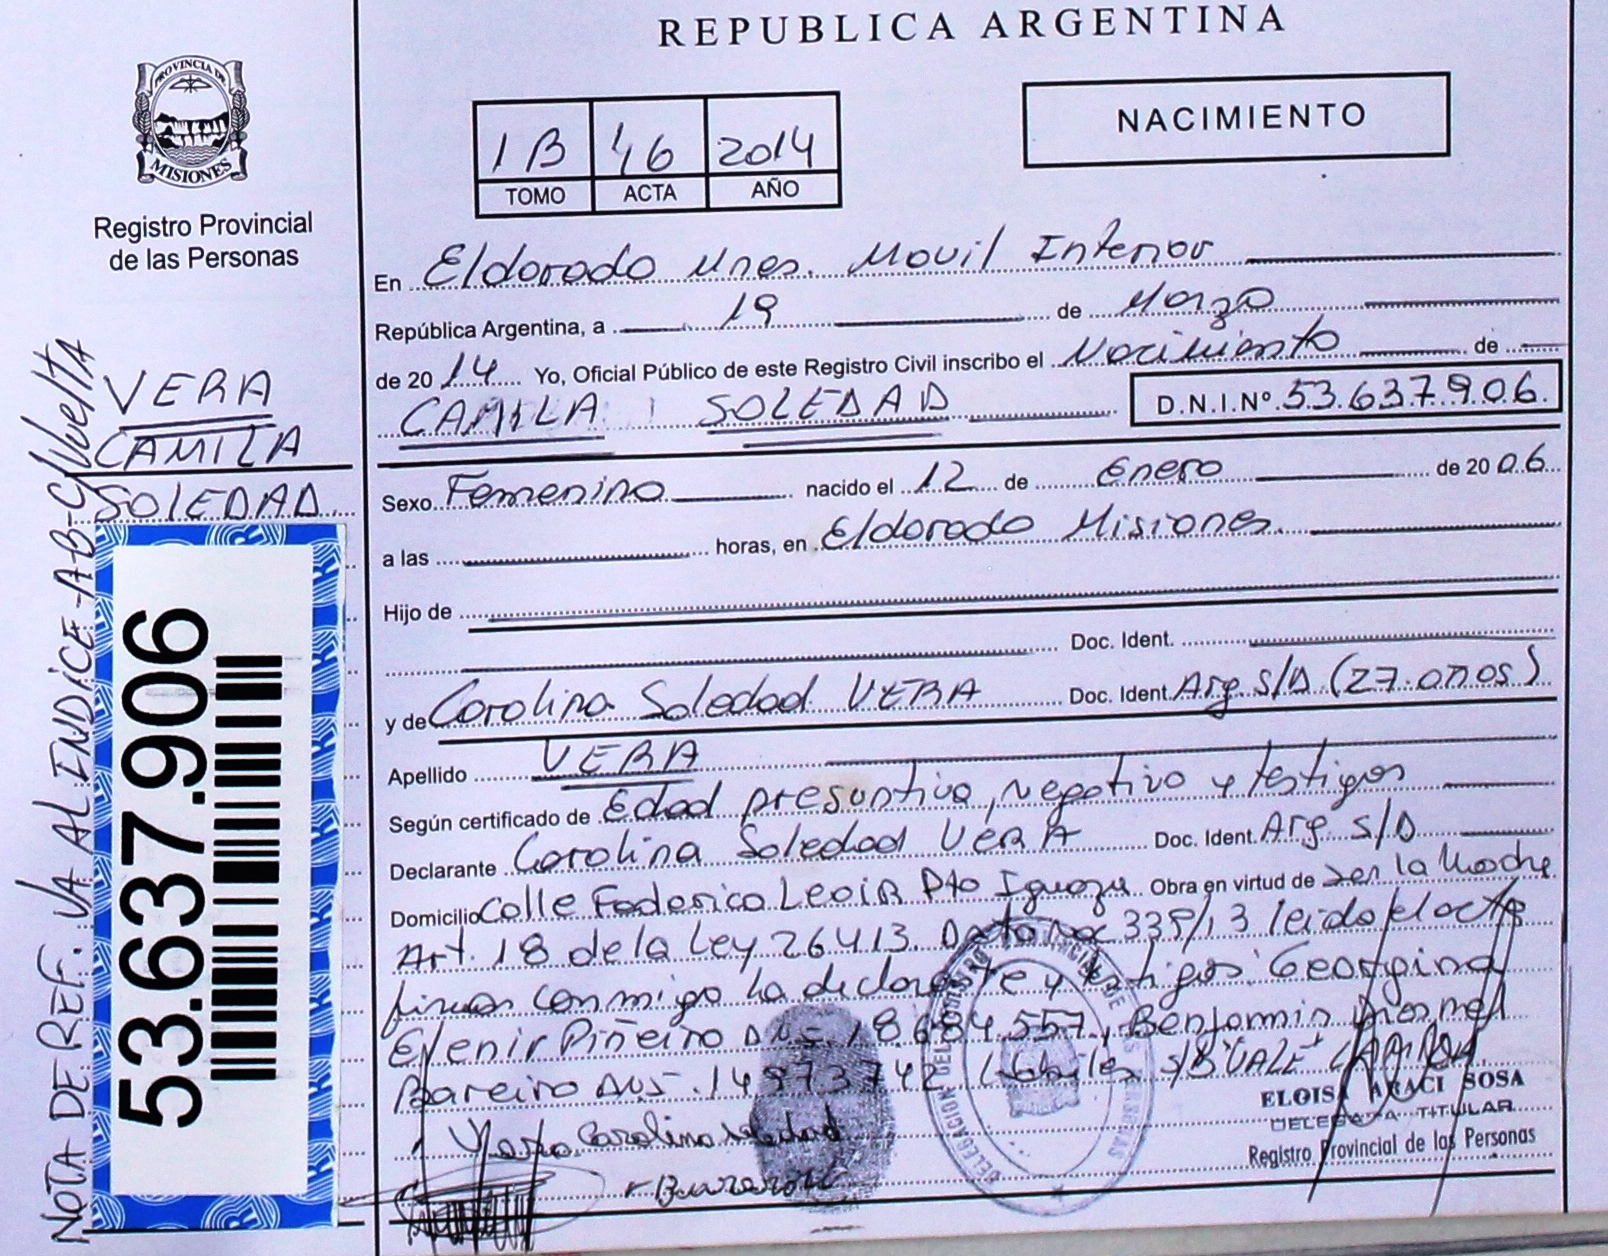 REPUBLICA ARGENTINA
PROVINCIA DE
MISIONES
Registro Provincial
de las Personas
1B 46 2014
TOMO ACTA AÑO
NACIMIENTO
En Eldorado Mnes. Movil Interior
República Argentina, a 19 de Marzo
de 2014 Yo, Oficial Público de este Registro Civil inscribo el Nacimiento de
CAMILA SOLEDAD D.N.I.Nº 53.637.906.
Sexo Femenino nacido el 12 de Enero de 2006
a las horas, en Eldorado Misiones.
Hijo de
Doc. Ident.
y de Carolina Soledad VERA Doc. Ident. Arg S/D (27 años)
Apellido VERA
Según certificado de Edad presuntiva, negativo y testigos
Declarante Carolina Soledad VerA Doc. Ident. Arg. S/D
Domicilio Calle Federico Leoir Pto Iguazu Obra en virtud de ser la Madre
Art. 18 de la Ley 26413. 339/13 leido el acta
firman conmigo la declarante y testigos Georgina
Elenir Piñeiro DNI 18.684.557, Benjamin
Bareiro DNI. 14973742 S/B VALE CAMILA
Vera Carolina Soledad
ELOISA ARACI SOSA
DELEGADA TITULAR
Registro Provincial de las Personas
VERA
CAMILA
SOLEDAD
53.637.906
NOTA DE REF. VA AL INDICE-A-B-C/Vuelta